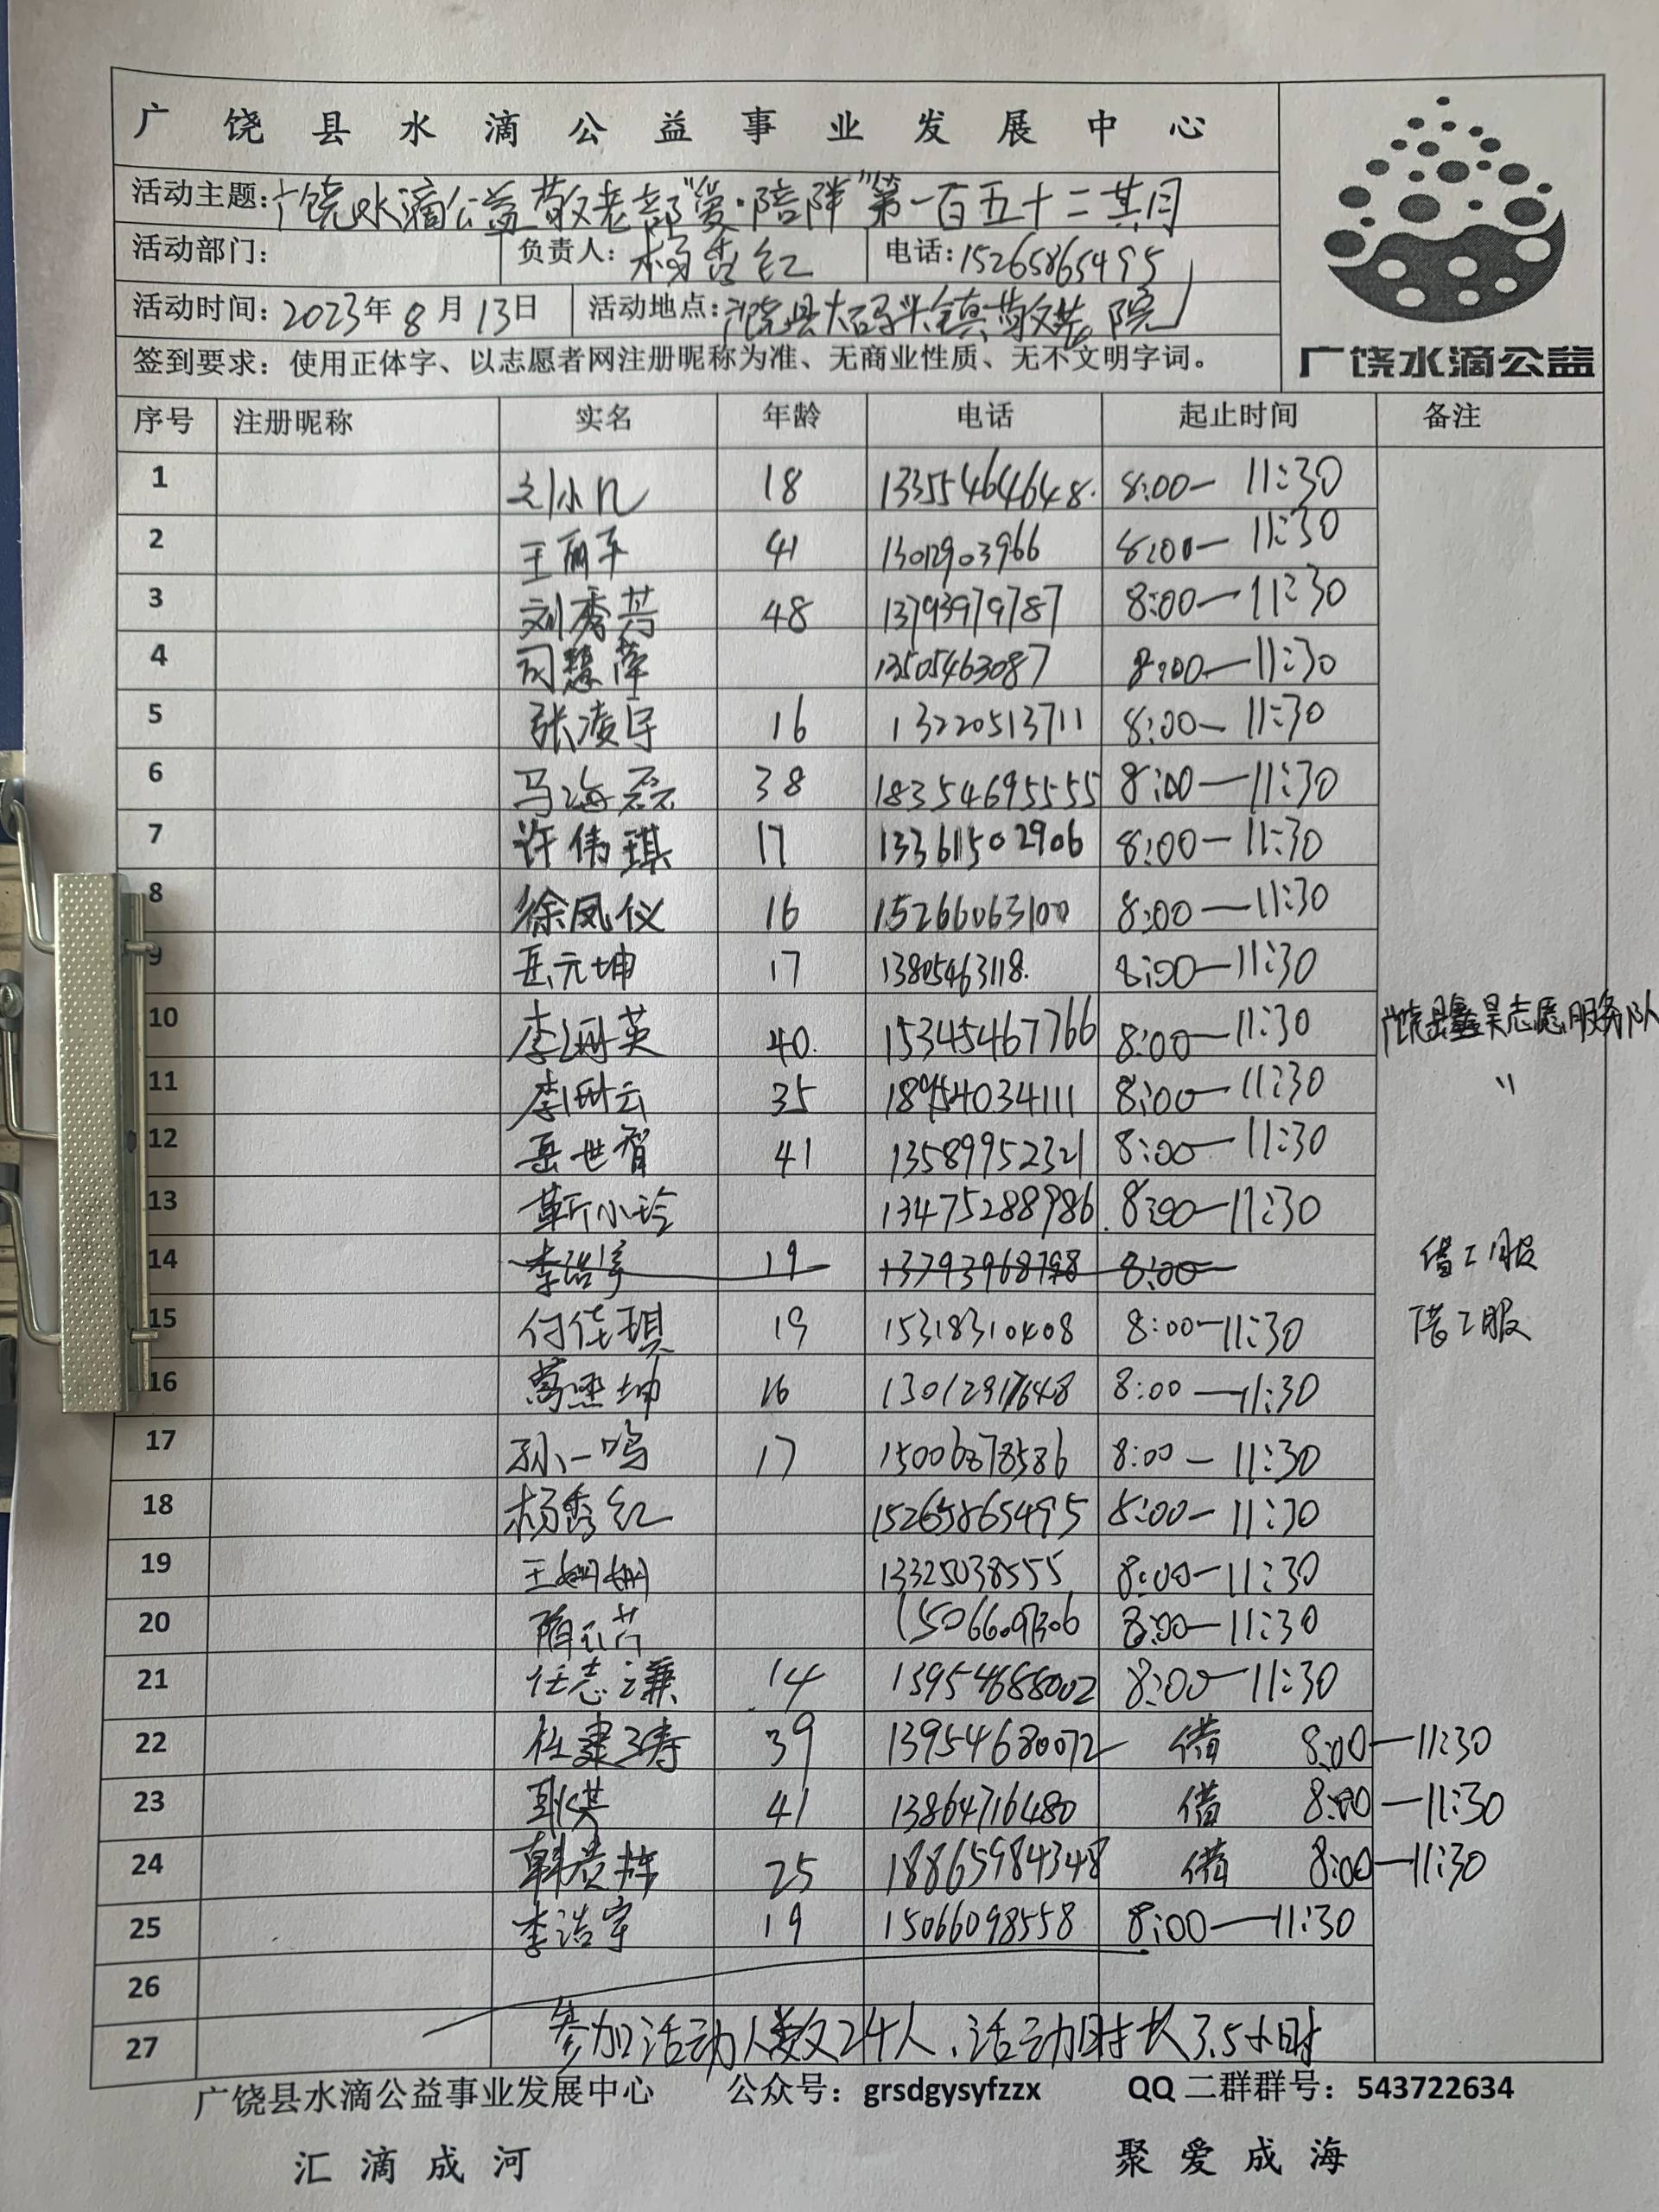 广饶县水滴公益事业发展中心
活动主题:广饶水滴公益敬老部"爱·陪伴"第一百五十二期
活动部门: 负责人: 杨秀红 电话:15265865495
活动时间:2023年8月13日 活动地点:广饶县大码头镇敬老院
签到要求:使用正体字、以志愿者网注册昵称为准、无商业性质、无不文明字词。
广饶水滴公益
序号 注册昵称 实名 年龄 电话 起止时间 备注
1 刘小凡 18 13355464648. 8:00— 11:30
2 王丽平 41 13012903966 8:00— 11:30
3 刘秀芸 48 13793979787 8:00—11:30
4 司慧萍 13505463087 8:00—11:30
5 张凌宇 16 13220513711 8:00— 11:30
6 马海磊 38 18354695555 8:00—11:30
7 许伟琪 17 13361502906 8:00—11:30
8 徐凤仪 16 15266063100 8:00—11:30
9 岳元坤 17 13805463118. 8:00—11:30
10 李珊英 40. 15345467766 8:00—11:30 广饶县 昊志愿服务队
11 李珊云 35 18954034111 8:00—11:30 〃
12 岳世智 41 13589952321 8:00—11:30
13 靳小玲 13475288986. 8:00—11:30
14 李浩宇 19 13793968798 8:00— 借工服
15 付佳琪 19 15318310408 8:00—11:30 借工服
16 坤 16 13012917648 8:00—11:30
17 孙一鸣 17 15006878586 8:00—11:30
18 杨秀红 15265865495 8:00—11:30
19 王姗姗 13325038555 8:00—11:30
20 隋 芳 15066097306 8:00—11:30
21 任志谦 14 13954688002 8:00—11:30
22 杜建涛 39 13954680072 借 8:00—11:30
23 耿洪 41 13864716480 借 8:00—11:30
24 韩贵栋 25 18865984348 借 8:00—11:30
25 李浩宇 19 15066098558 8:00—11:30
26
27 参加活动人数24人、活动时长3.5小时
广饶县水滴公益事业发展中心 公众号:grsdgysyfzzx QQ二群群号:543722634
汇滴成河 聚爱成海